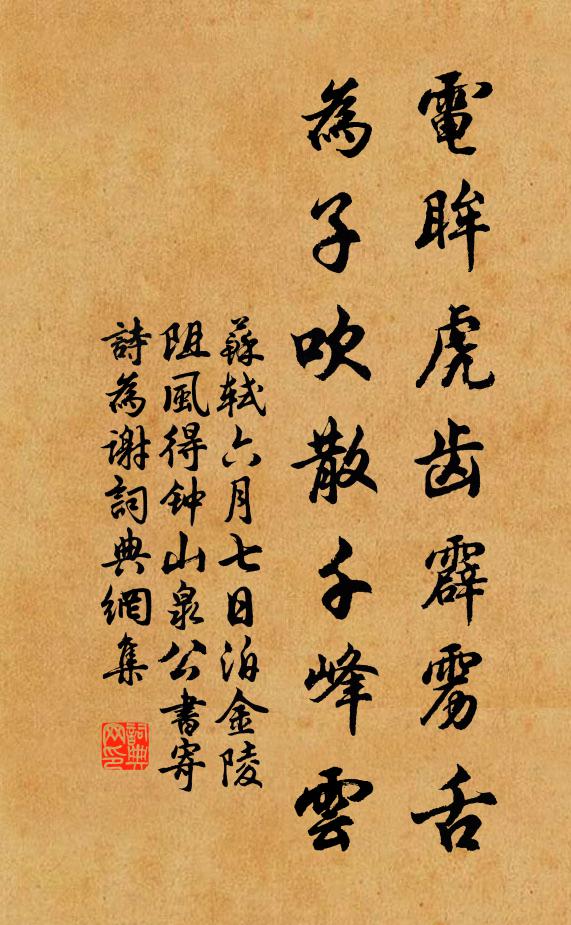 電眸虎齿霹雳舌
為子吹散千峰雲
蘇軾六月七日泊金陵
阻風得钟山泉公書寄
詩為谢詞典網集
詞典網印